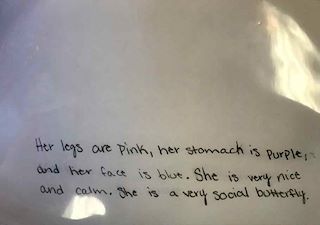 Her legs are pink, her stomach is purple,
and her face is blue. She is very nice
and calm. She is a very social butterfly.